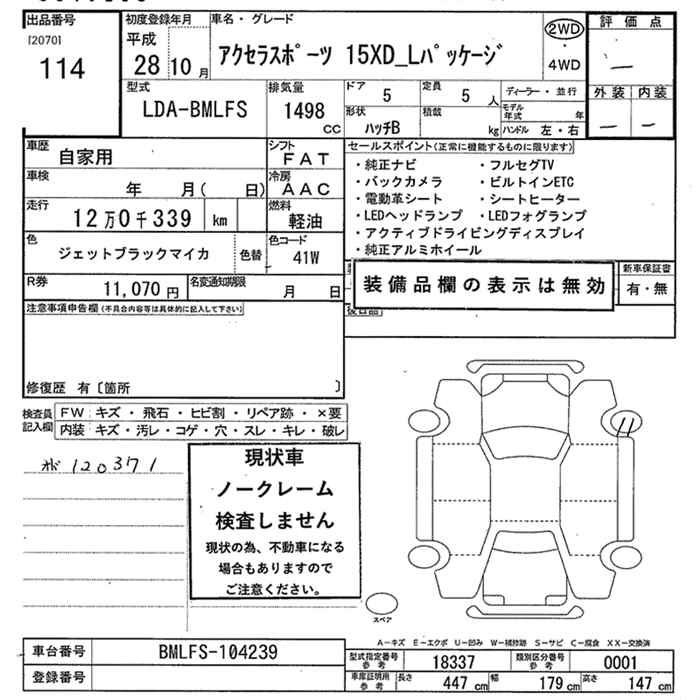 出品番号
[2070]
114
初度登録年月
平成
28 10 月
車名・グレード
アクセラスポーツ 15XD_Lパッケージ
2WD
・
4WD
評価点
—
外装 内装
— —
型式
LDA-BMLFS
排気量
1498
CC
ドア
5
定員
5 人
形状
ハッチB
積載
kg
ディーラー・並行
モデル年式 年
ハンドル 左・右
車歴
自家用
シフト
FAT
車検
年 月( 日)
冷房
AAC
走行
12万0千339 km
燃料
軽油
色
ジェットブラックマイカ
色替
色コード
41W
R券
11,070 円
名変通知期限
月 日
セールスポイント(正常に機能するものに限ります)
・純正ナビ ・フルセグTV
・バックカメラ ・ビルトインETC
・電動革シート ・シートヒーター
・LEDヘッドランプ ・LEDフォグランプ
・アクティブドライビングディスプレイ
・純正アルミホイール
装備品欄の表示は無効
新車保証書
有・無
後日品
注意事項申告欄(不具合内容等は具体的に記入して下さい)
修復歴 有〔箇所 〕
検査員記入欄
FW キズ・飛石・ヒビ割・リペア跡・×要
内装 キズ・汚レ・コゲ・穴・スレ・キレ・破レ
120371
現状車
ノークレーム
検査しません
現状の為、不動車になる
場合もありますので
ご注意ください。
スペア
A−キズ E−エクボ U−凹み W−補修跡 S−サビ C−腐食 XX−交換済
車台番号
BMLFS-104239
登録番号
型式指定番号 参考
18337
類別区分番号 参考
0001
車庫証明用 参考
長さ 447 cm 幅 179 cm 高さ 147 cm